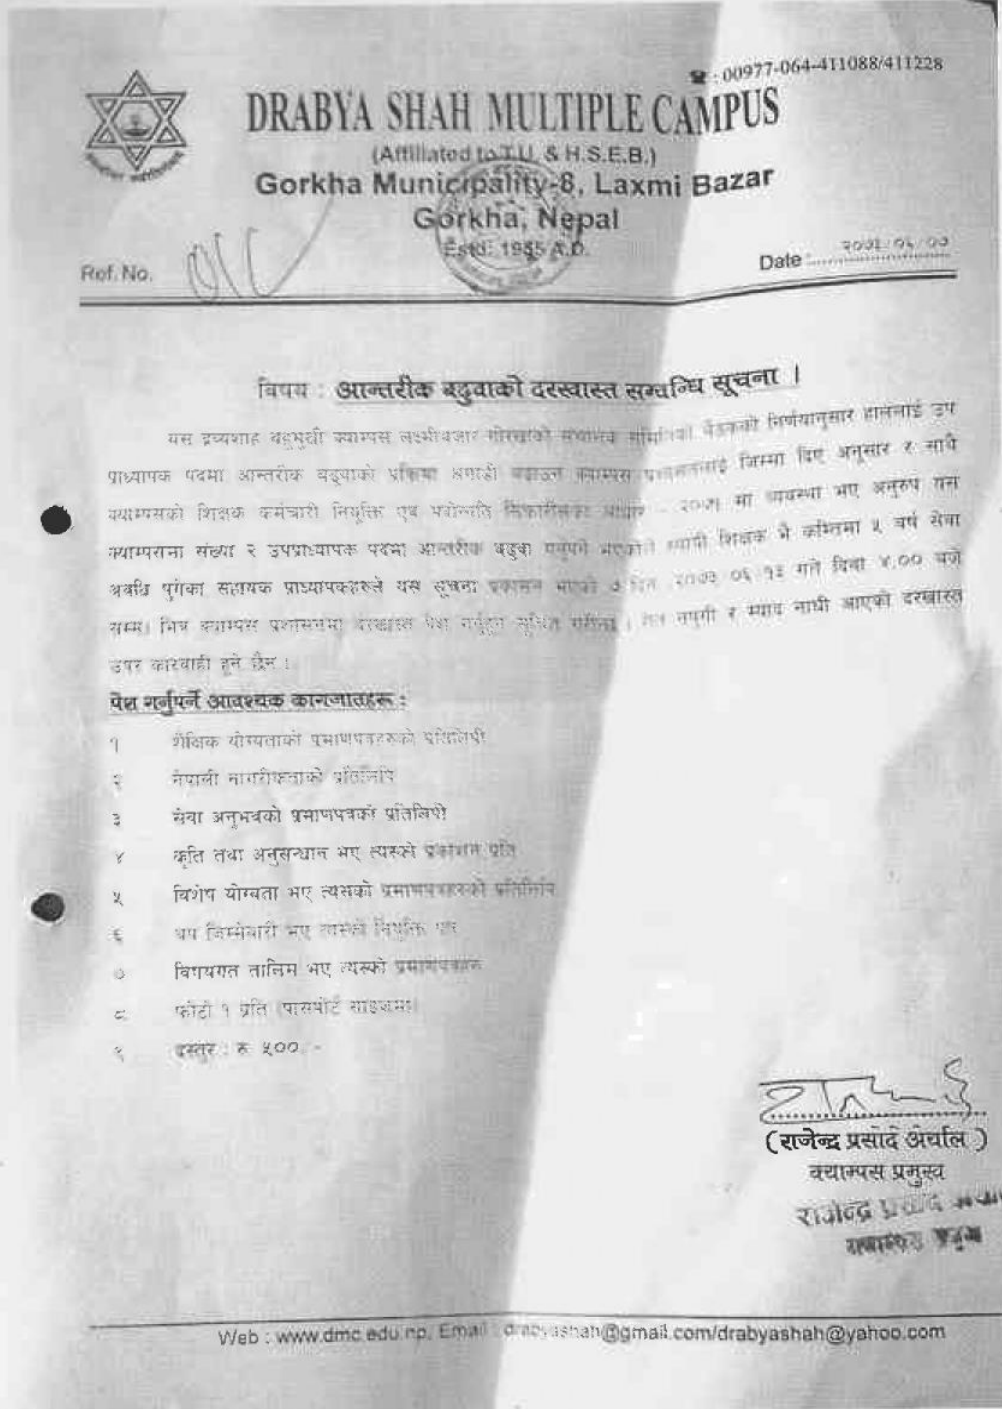 ☎ : 00977-064-411088/411228
DRABYA SHAH MULTIPLE CAMPUS
(Affiliated to T.U. & H.S.E.B.)
Gorkha Municipality-8, Laxmi Bazar
Gorkha, Nepal
Estd. 1985 A.D.
Ref. No.
Date :
विषय : आन्तरीक बढुवाको दरखास्त सम्वन्धि सूचना ।
यस द्रव्यशाह बहुमुखी क्याम्पस लक्ष्मीबजार गोरखाको संचालक समितिको बैठकको निर्णयानुसार हाललाई उप
प्राध्यापक पदमा आन्तरीक बढुवाको प्रक्रिया अगाडी बढाउन क्याम्पस प्रशासनलाई जिम्मा दिए अनुसार र साथै
क्याम्पसको शिक्षक कर्मचारी नियुक्ति एवं पदोन्नति सिफारीसका आधार - २०७१ मा व्यवस्था भए अनुरुप यस
क्याम्पसमा संख्या २ उपप्राध्यापक पदमा आन्तरीक बढुवा गर्नुपर्ने भएकोले स्थायी शिक्षक भै कम्तिमा ५ वर्ष सेवा
अवधि पुगेका सहायक प्राध्यापकहरुले यस सूचना प्रकाशन भएको ७ दिन ०६ १३ गते दिवा ४.०० बजे
सम्म भित्र क्याम्पस प्रशासनमा दरखास्त पेश गर्नुहुन सूचित गरीन्छ । रित नपुगी र म्याद नाघी आएको दरखास्त
उपर कारवाही हुने छैन ।
पेश गर्नुपर्ने आवश्यक कागजातहरू :
१ शैक्षिक योग्यताको प्रमाणपत्रहरुको प्रतिलिपी
२ नेपाली नागरीकताको प्रतिलिपि
३ सेवा अनुभवको प्रमाणपत्रको प्रतिलिपी
४ कृति तथा अनुसन्धान भए त्यस्को प्रकाशन प्रति
५ विशेष योग्यता भए त्यसको प्रमाणपत्रहरुको प्रतिलिपि
६ थप जिम्मेवारी भए त्यस्को नियुक्ति पत्र
७ विषयगत तालिम भए त्यस्को प्रमाणपत्रहरु
८ फोटो १ प्रति (पासपोर्ट साइजमा)
९ दस्तुर : रु ५००/-
(राजेन्द्र प्रसाद अर्याल )
क्याम्पस प्रमुख
राजेन्द्र प्रसाद
क्याम्पस प्रमुख
Web : www.dmc.edu.np, Email : drabyashah@gmail.com/drabyashah@yahoo.com